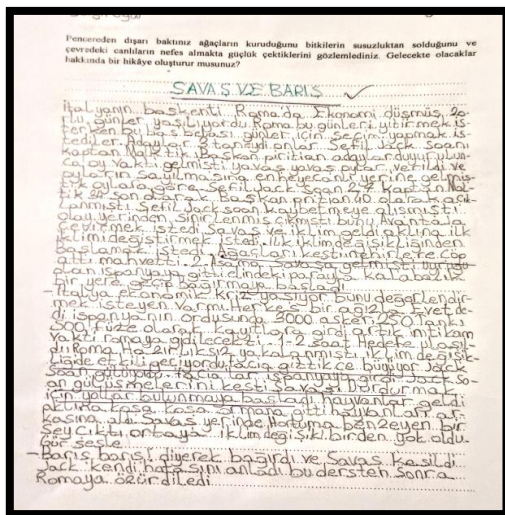 Pencereden dışarı baktınız ağaçların kuruduğunu bitkilerin susuzluktan solduğunu ve
çevredeki canlıların nefes almakta güçlük çektiklerini gözlemlediniz. Gelecekte olacaklar
hakkında bir hikâye oluşturur musunuz?
SAVAŞ VE BARIŞ
İtalyanın başkenti Roma'da Ekonomi düşmüş zo-
rlu günler yaşıyordu Roma bu günleri yitirmek is-
terken bu baş belası günler için Seçim yapmak is-
tediler Adaylar 3 taneydi onlar Sefil Jack Soani
Kaptan Başkan piritian adaylar duyurulun-
ca oy vakti gelmişti yavaş yavaş oylar verildi ve
oyların sayılmasına en heyecanlı yerine gelmiş-
tik oylara göre Sefil Jack Soan 27 Kaptan
20 son olarak Başkan pritian 40 olarak açık-
lanmıştı Sefil Jack Soan kaybetmeye alışmıştı
olay yerinden sinirlenmiş çıkmıştı bunu Avantaja
çevirmek istedi Savaş ve iklim geldi aklına ilk
iklimi değiştirmek istedi ilk iklim değişikliğinden
başlamak istedi Ağaçları kesti nehirlere çöp
attı mahvetti 2. savaşa gelmişti
olan ispanyaya gitti elindeki parayla kalabalık
bir yere geçip bağırmaya başladı
- İtalya ekonomik kriz yaşıyor bunu değerlendir-
mek isteyen varmı herkes bir ağızla Evet de-
di ispanya'nın ordusunda 3000 asker 250 tank
500 füze olarak kayıtlara girdi artık intikam
vakti romaya gidilecekti 1-2 saat Hedefe ulaşıl-
dı Roma Hazırlıksız yakalanmıştı iklim değişik-
liğide etkili geçiyordu acı gittikce büyüyor Jack
Soan gülüyordu ispanyayı Jack So-
an gülüşmelerini kesti savaşı durdurma
için yollar bulunmaya başladı hayvanlar geldi
aklına koşa koşa ormana gitti hayvanları ar-
kasına aldı Savaş yerinde Hortuma benzeyen bir
şey çıktı ortaya iklim değişikl birden yok oldu
Gür sesle
- Barış barış! diyerek bağırdı ve Savaş kesildi
Jack kendi hatasını anladı bu dersten sonra
Romaya özür diledi